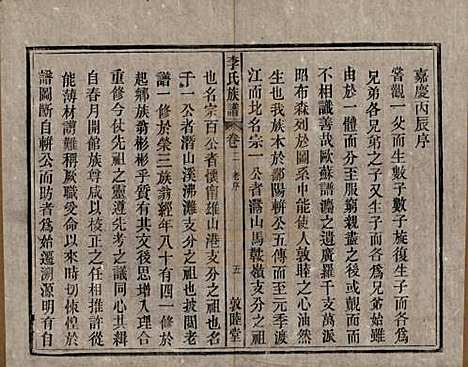 嘉慶丙辰序
嘗觀一父而生數子數子旋復生子而各爲
兄弟各兄弟之子又各生子而各爲兄弟始雖
於一體而分分以至於服窮親盡之後或覿面而
不相識善哉歐蘇譜灋之遺廣羅千支萬派
昭布森列於圖系中能使人敦睦之心油然
生也我族木於鄱陽斬公五傳而至元季渡
江而北名宗一公者潛山馬鞍嶺支分之祖
李氏族譜
卷二
老序
五
敦睦堂
也名宗百公者懷甯雄山港支分之祖也名
千一公者潛山溪沸灘支分之祖也披閱老
譜一修於榮三族翁經年八十有四一修於
起鄉族翁彬彬乎質有其文後始增入理合
重修於今先祖之遺先考之議同心共輯
自春月開館族之尊長咸以良爲任許予以
能薄材谫難稱厥職受命以來時切悚惶於
譜圖斷自斬公而助者爲始遡源明有自